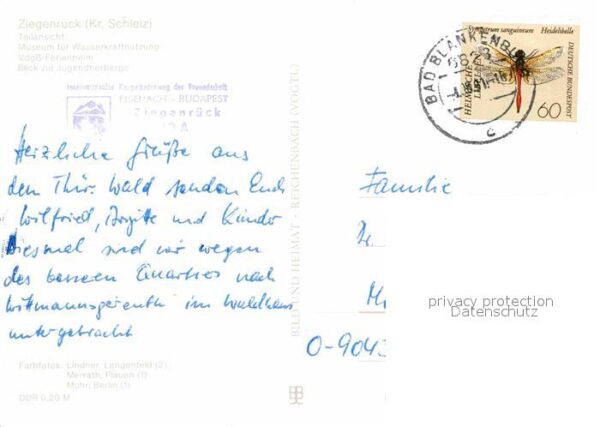 Ziegenrück (Kr. Schleiz)
Teilansicht
Museum für Wasserkraftnutzung
VdgB-Ferienheim
Blick zur Jugendherberge
Internationaler Bergwanderweg der Freundschaft
EISENACH - BUDAPEST
Ziegenrück
Herzliche Grüße aus
dem Thür. Wald senden Euch
Wilfried, Brigitte und Kinder
Diesmal sind wir wegen
des besseren Quartiers nach
im Waldhaus
untergebracht
Farbfotos: Lindner, Lengenfeld (2)
Merrath, Plauen (1)
Mohr, Berlin (1)
DDR 0,20 M
BILD UND HEIMAT · REICHENBACH (VOGTL)
BAD BLANKENBURG
c
Sympetrum sanguineum Heidelibelle
HEIMISCHE
LIBELLEN
DEUTSCHE BUNDESPOST
60
Familie
Dr.
O-9043
privacy protection
Datenschutz